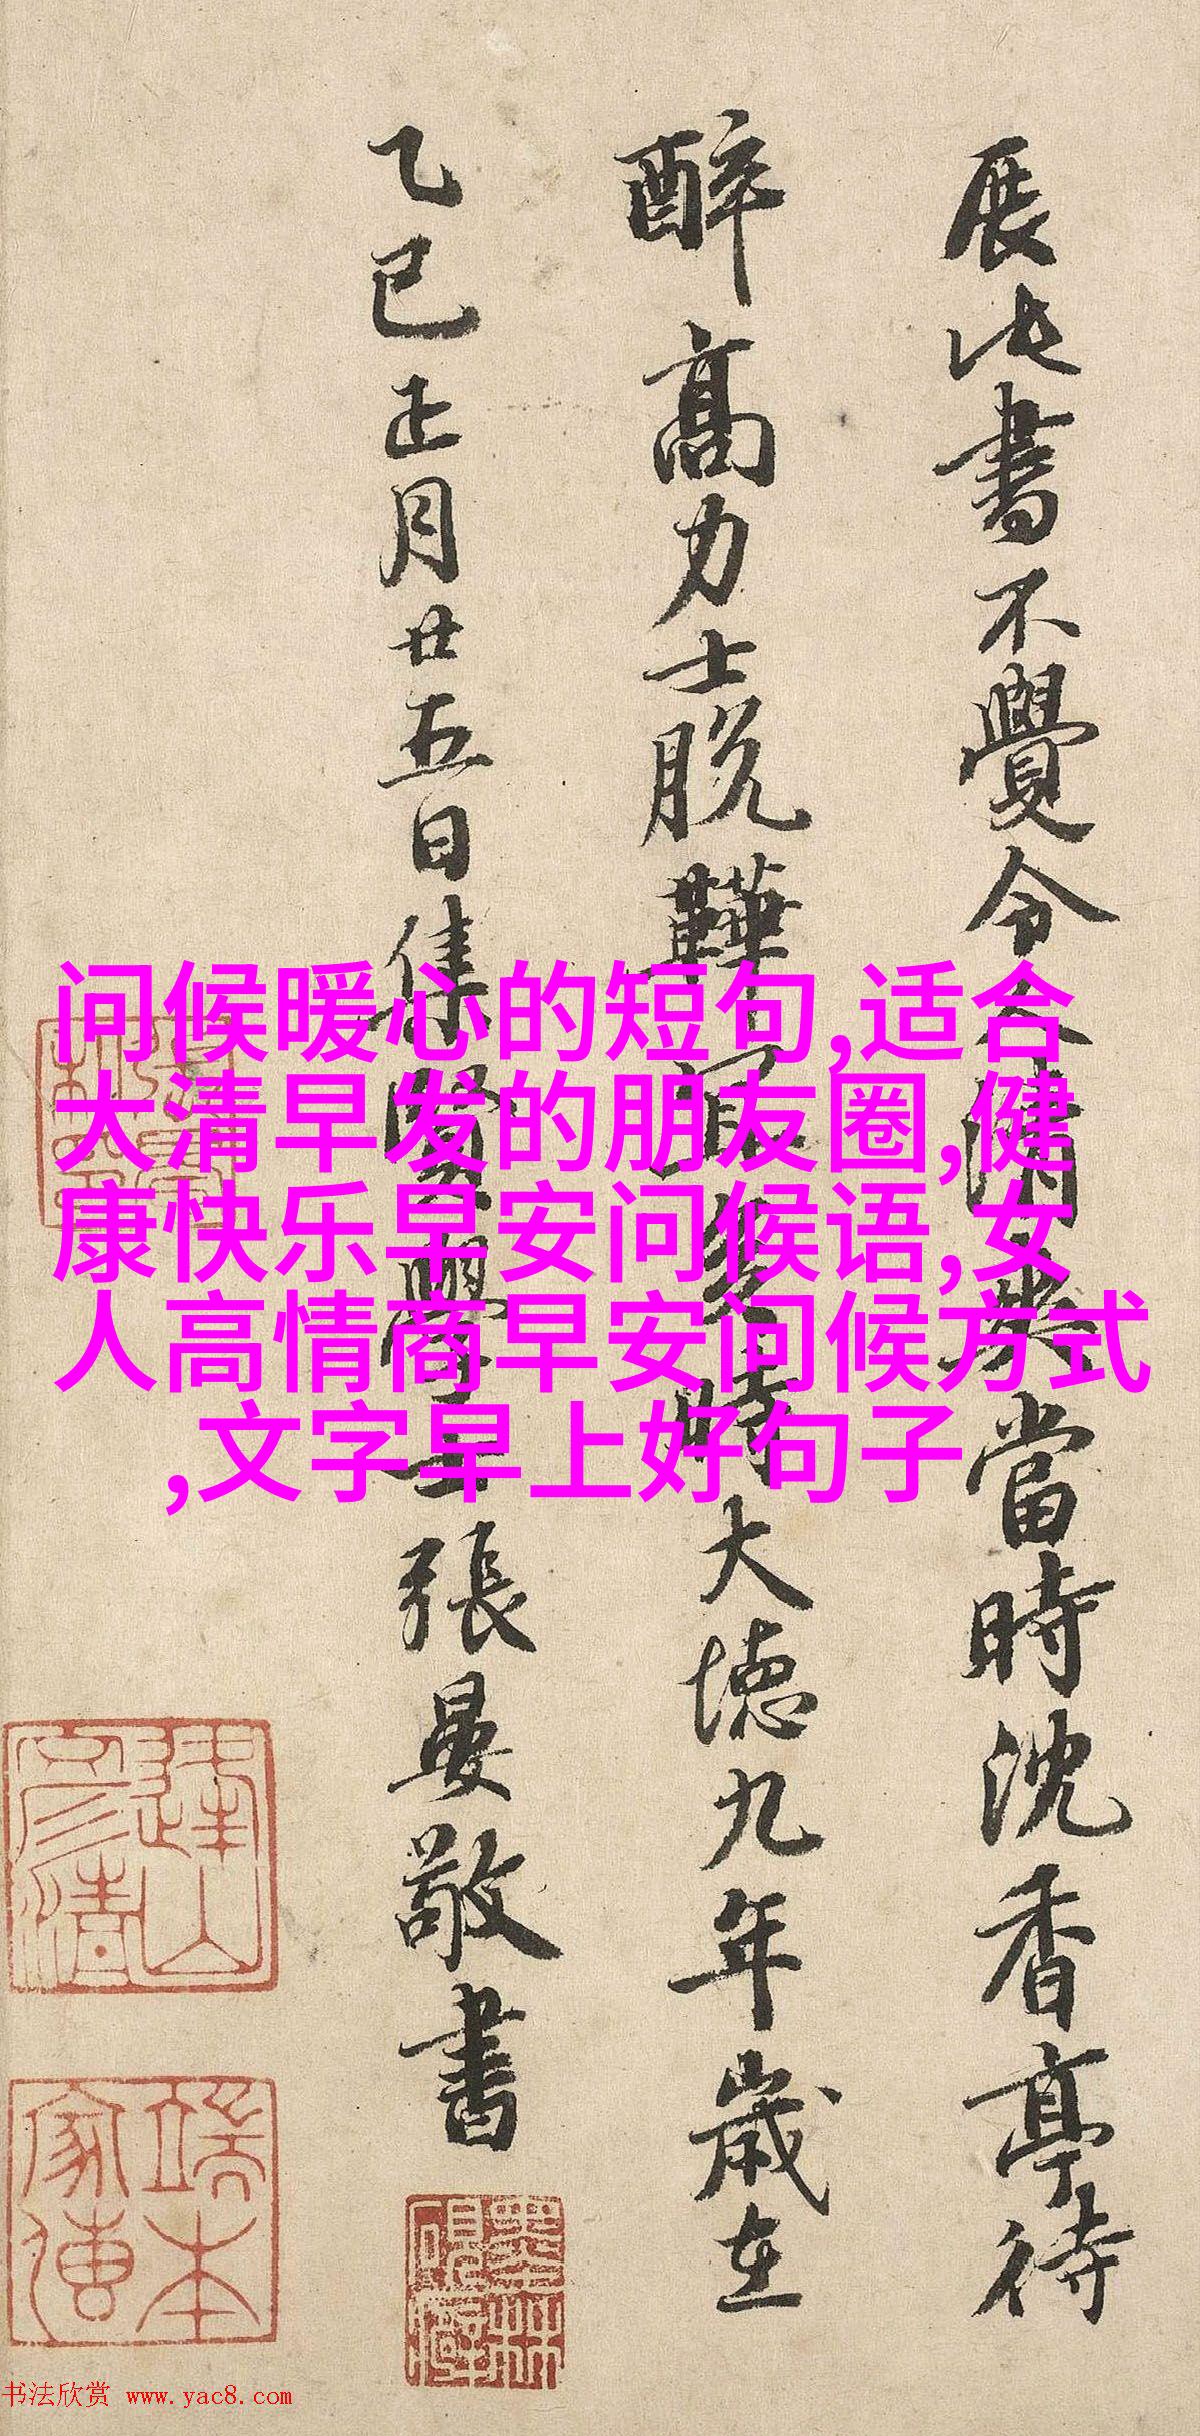 展此書不覺令人清爽當時沈香亭待
醉高力士脫鞾宜矣時大德九年歲在
乙巳正月廿五日集賢學士張晏敬書
问候暖心的短句,适合
大清早发的朋友圈,健
康快乐早安问候语,女
人高情商早安问候方式
,文字早上好句子
端本
家傳
书法欣赏 www.yac8.com